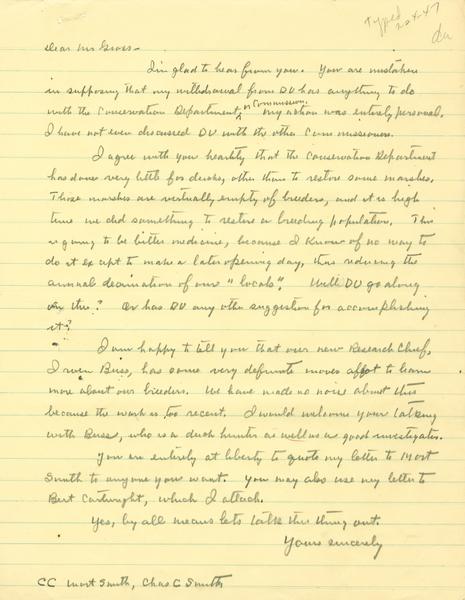 Typed
2-4-47
Dear Mr Gross-
I'm glad to hear from you. You are mistaken
in supposing that my withdrawal from DU has anything to do
or Commission.
with the Conservation Department my action was entirely personal.
I have not even discussed DU with the other Commissioners.
I agree with you heartily that the Conservation Department
has done very little for ducks, other than to restore some marshes.
These marshes are virtually empty of breeders, and it is high
time we did something to restore a breeding population. This
is going to be bitter medicine, because I know of no way to
do it except to make a later opening day, thus reducing the
annual decimation of our "locals". Will DU go along
on this? Or has DU any other suggestion for accomplishing
it?
I am happy to tell you that our new Research Chief,
Irven Buss, has some very definite moves afoot to learn
more about our breeders. We have made no noise about this
because the work is too recent. I would welcome your talking
with Buss, who is a duck hunter as well as a good investigator.
You are entirely at liberty to quote my letter to Mort
Smith to anyone you want. You may also use my letter to
Bert Cartwright, which I attach.
Yes, by all means lets talk this thing out.
Yours sincerely
CC Mort Smith, Chas C Smith